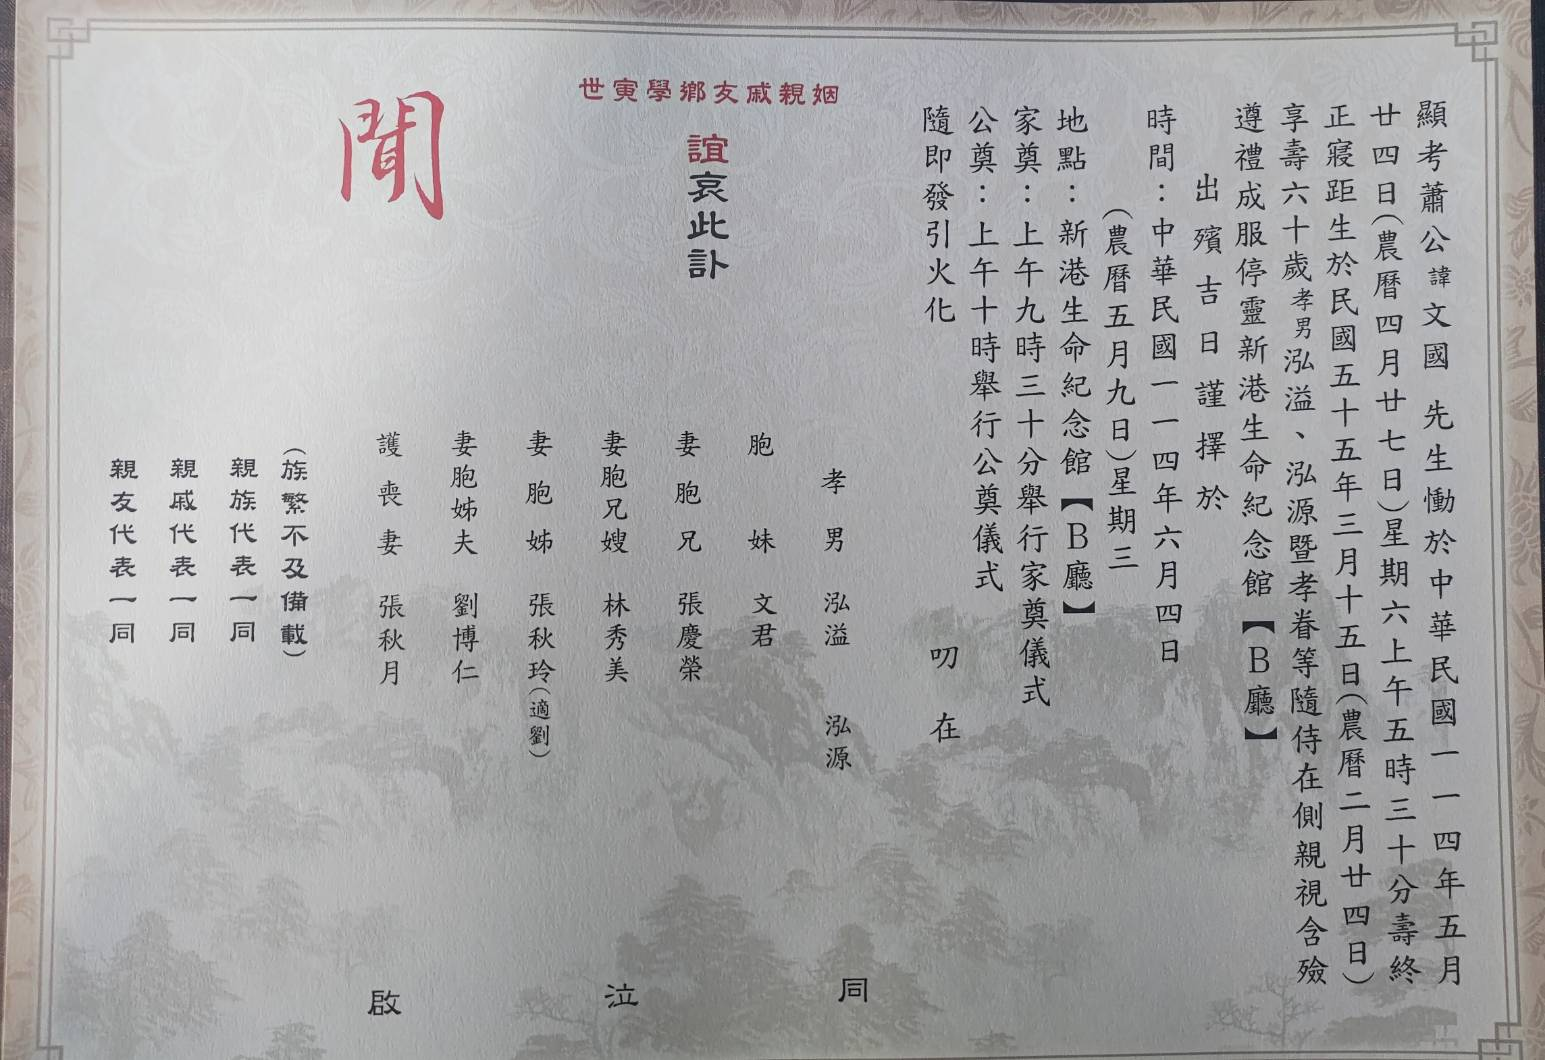 顯考蕭公諱文國 先生慟於中華民國一一四年五月
廿四日(農曆四月廿七日)星期六上午五時三十分壽終
正寢距生於民國五十五年三月十五日(農曆二月廿四日)
享壽六十歲孝男泓溢、泓源暨孝眷等隨侍在側親視含殮
遵禮成服停靈新港生命紀念館【B廳】
出殯吉日謹擇於
時間：中華民國一一四年六月四日
(農曆五月九日)星期三
地點：新港生命紀念館【B廳】
家奠：上午九時三十分舉行家奠儀式
公奠：上午十時舉行公奠儀式
隨即發引火化
叨在
姻親戚友鄉學寅世
誼哀此訃
聞
孝男 泓溢 泓源
胞妹 文君
妻胞兄 張慶榮
妻胞兄嫂 林秀美
妻胞姊 張秋玲(適劉)
妻胞姊夫 劉博仁
護喪妻 張秋月
(族繁不及備載)
親族代表一同
親戚代表一同
親友代表一同
同泣啟